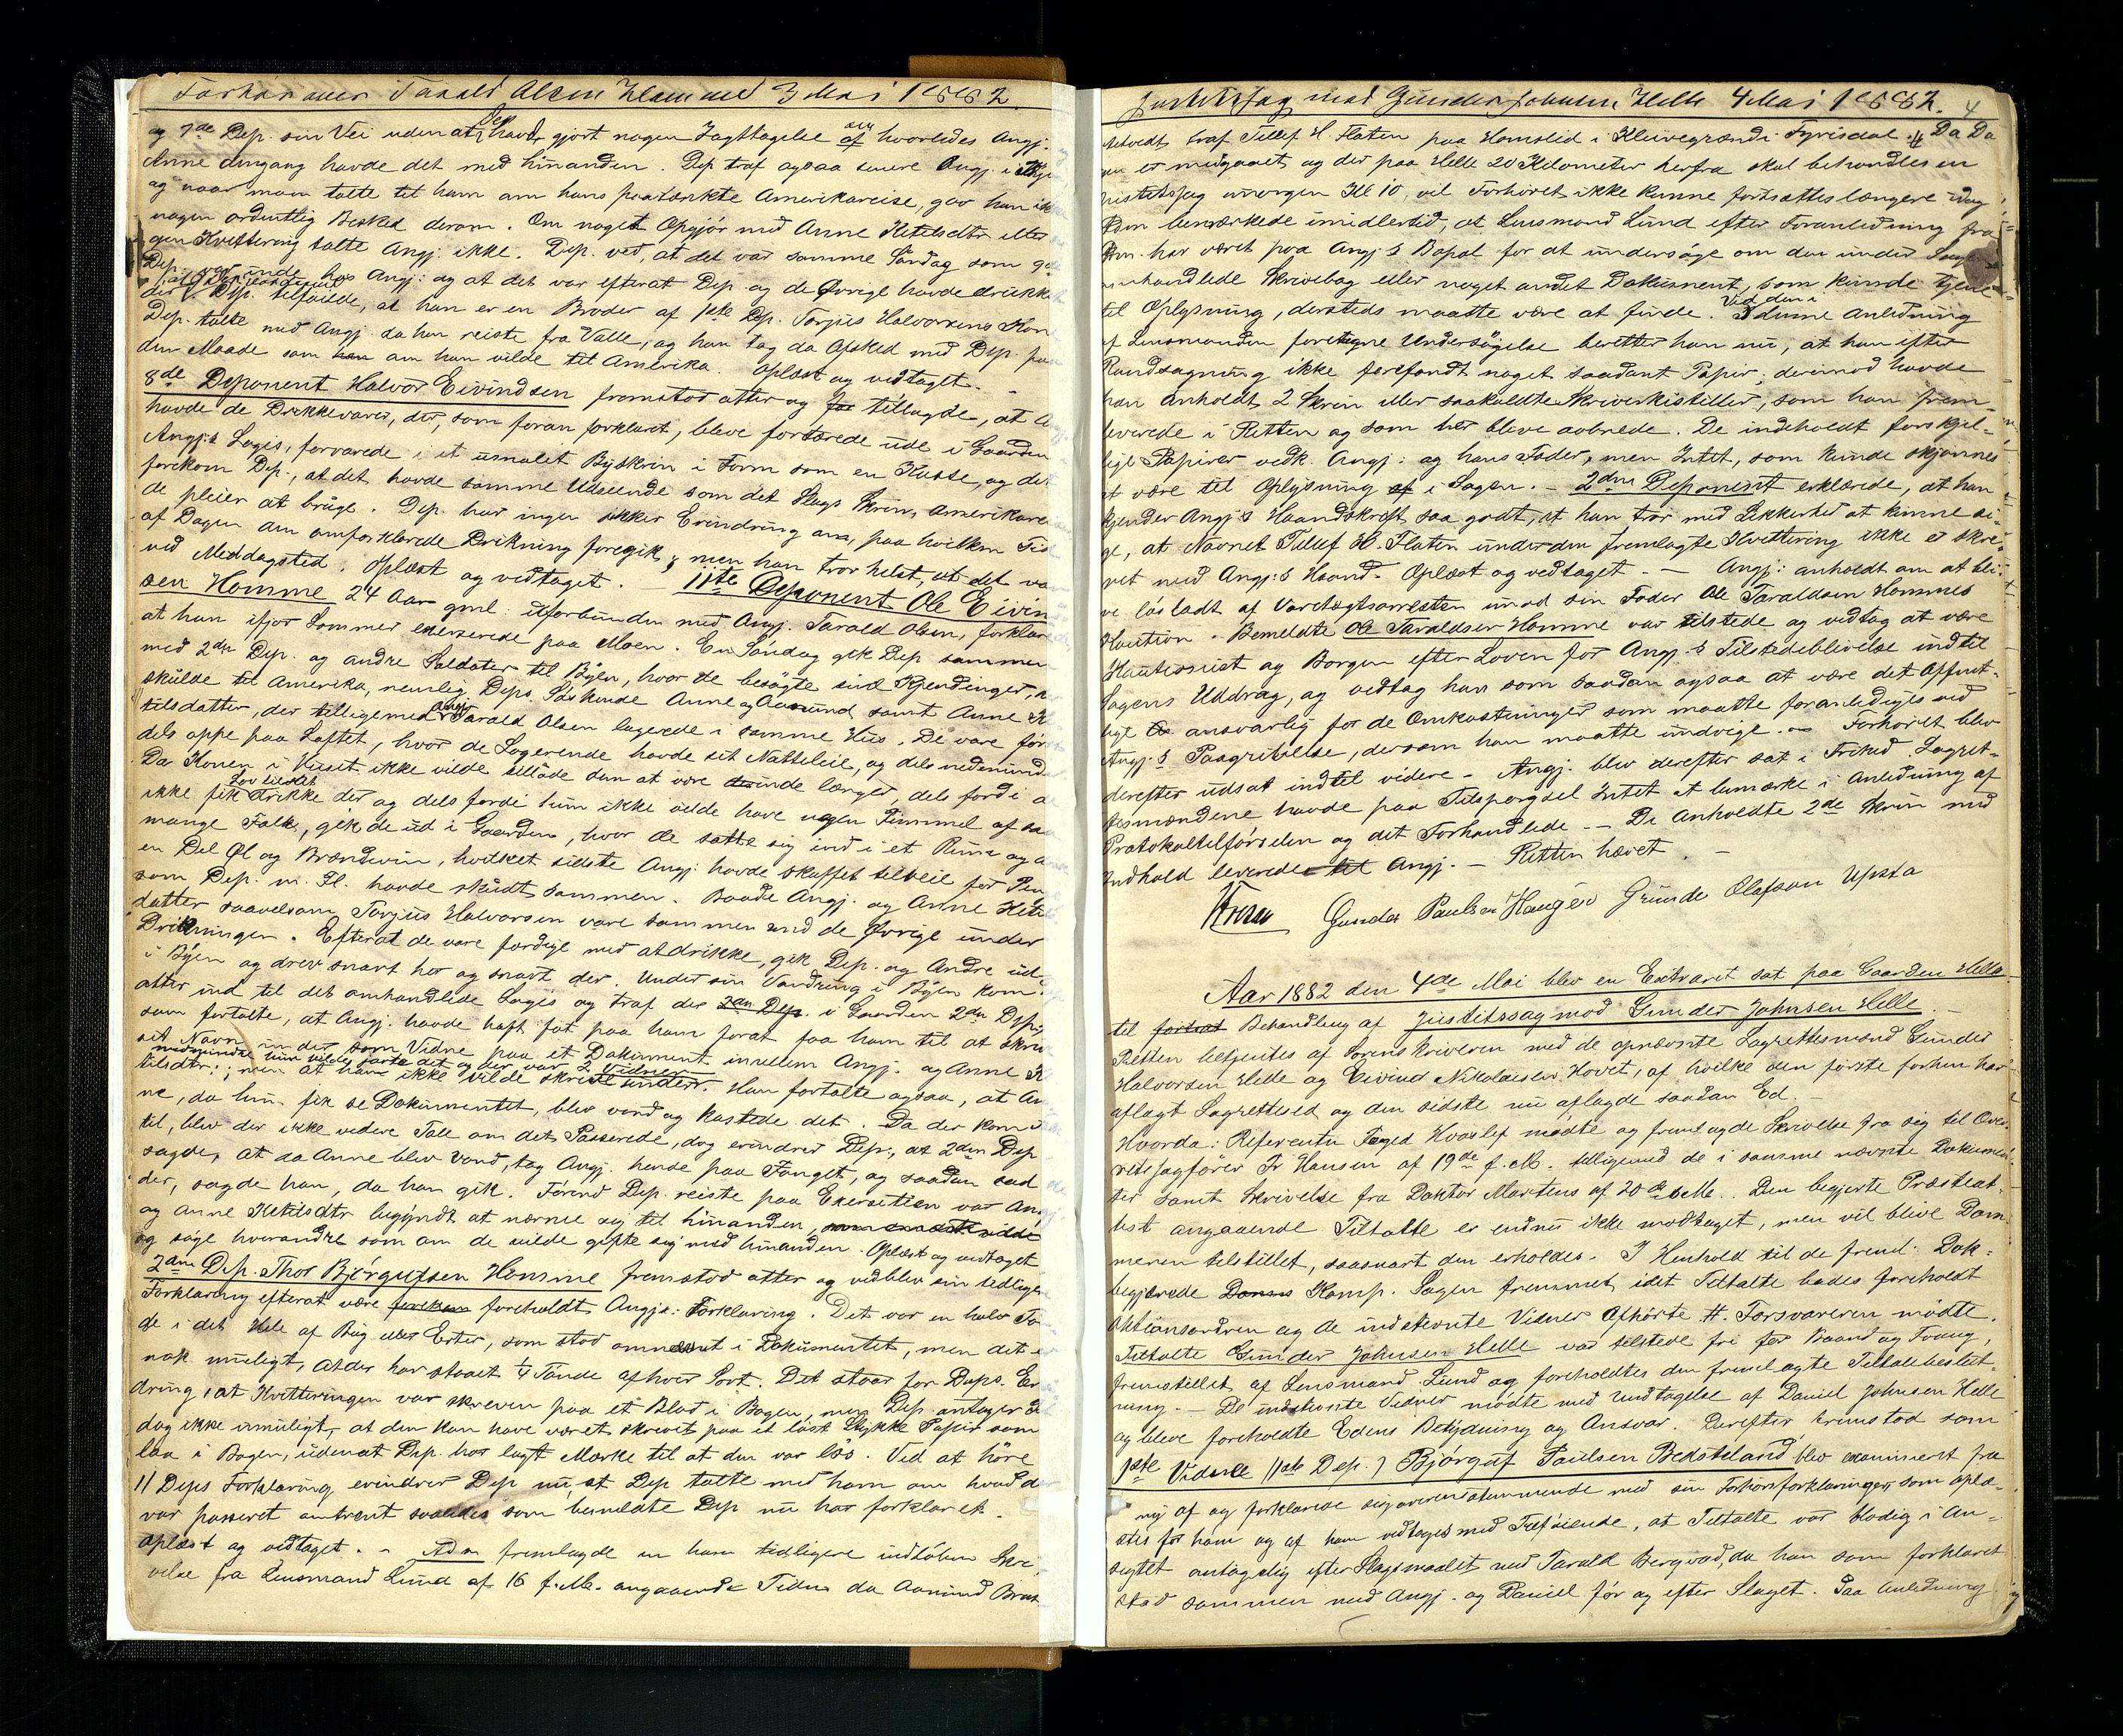 Forhør over Tarald Olsen Homme 3 Mai 1882.
og 7de Dep. sin Vei uden at Dep havde gjort nogen Iagttagelse om hvorledes Angj.
Anne Omgang havde det med hinanden. Dep. traf ogsaa senere Angj. i
og naar man talte til ham om hans paatænkte Amerikareise, gav han
nogen ordentlig Besked derom. Om noget Opgjør med Anne Ketilsdtr eller
gen Kvittering talte Angj. ikke. Dep. ved, at det var samme Søndag som
Dep. var inde hos Angj: og at det var efterat Dep. og de Øvrige havde drukket
der. Dep. tilføiede, at han er en Broder af 1ste Dep. Torjus Halvorsens Kone
Dep. talte med Angj. da han reiste fra Valle, og han tog da Afsked med Dep. paa
den Maade som om han vilde til Amerika. Oplæst og vedtaget. -
8de Deponent Halvor Eivindsen fremstod atter og tillagde, at
havde de Drikkevarer, der, som foran forklaret, bleve fortærede ude i Gaarden
Angj:s Logis, forvarede i et umalet Byskrin i Form som en Kasse, og det
forekom Dep:, at det havde samme Udseende som det Slags Skrin, Amerikare
de pleier at bruge. Dep. har ingen sikker Erindring om, paa hvilken Tid
af Dagen den omforklarede Drikning foregik, men han tror helst, at det var
ved Middagstid. Oplæst og vedtaget. - 11te Deponent Ole Eivin
sen Homme 24 Aar gml. uforbunden med Angj. Tarald Olsen, forklar
at han ifjor Sommer exerserede paa Moen. En Søndag gik Dep sammen
med 2den Dep. og andre Soldater til Byen, hvor de besøgte sine Kjendinger,
skulde til Amerika, nemlig Deps. Sødskende Anne og Aasmund samt Anne
tilsdatter, der tilligemed Angj Tarald Olsen logerede i samme Hus. De vare før
dels oppe paa Loftet, hvor de Logerende havde sit Natteleie, og dels nedenunder
Da Konen i Huset ikke vilde tillade dem at være inde længer, dels fordi
ikke fik Lov til at drikke der og dels fordi hun ikke vilde have nogen Tummel af saa
mange Folk, gik de ud i Gaarden, hvor de satte sig ind i et Rum og
en Del Øl og Brændevin, hvilket sidste Angj. havde skaffet tilveie for Pen
som Dep. m. Fl. havde skudt sammen. Baade Angj. og Anne Ketils
datter saavelsom Torjus Halvorsen vare sammen med de Øvrige under
Drikningen. Efterat de vare færdige med at drikke, gik Dep. og Andre ud
i Byen og drev snart her og snart der. Under sin Vandring i Byen kom
atter ind til det omhandlede Logis og traf der i Gaarden 2den Dep.,
som fortalte, at Angj. havde haft fat paa ham forat faa ham til at skrive
sit Navn under som Vidne paa et Dokument imellem Angj. og Anne K
medmindre hun vilde godta det og der var 2 Vidner
tilsdtr.; men at han ikke vilde skrive under. Han fortalte ogsaa, at An
ne, da hun fik se Dokumentet, blev vond og kastede det. Da der kom
til, blev der ikke videre Tale om det Passerede, dog erindrer Dep:, at 2den Dep
sagde, at da Anne blev vond, tog Angj. hende paa Fanget, og saadan sad
der, sagde han, da han gik. Førend Dep. reiste paa Exersitien var Angj.
og Anne Ketilsdtr begyndt at nærme sig til hinanden,
og søge hverandre som om de vilde gifte sig med hinanden. Oplæst og vedtaget
2den Dep. Thor Bjørgufsen Homme fremstod atter og vedblev sin tidligere
Forklaring efterat være foreholdt Angjs: Forklaring. Det var en halv Tøn
de i det Hele af Byg eller Erter, som stod omnævnt i Dokumentet, men det er
nok muligt, at der har staaet ¼ Tønde af hver Sort. Det staar for Deps. Er
dring, at Kvitteringen var skreven paa et Blad i Bogen, men Dep. antager
dog ikke umuligt, at den kan have været skrevet paa et løst Stykke Papir som
laa i Bogen, uden at Dep. har lagt Mærke til at den var løs. Ved at høre
11 Deps Forklaring erindrer Dep nu, at Dep talte med ham om hvad der
var passeret omtrent saaledes som bemeldte Dep nu har forklaret.
Oplæst og vedtaget. - Adm fremlagde en ham tidligere indløben Skri-
velse fra Lensmand Lund af 16 f. M. angaaende Tiden da Aamund Brat
Justitssag mod Gunder Johnsen Helle 4 Mai 1882. 4
tvedt traf Tellef H. Flaten paa Homslid i Kleivegrænd i Fyrisdal. Da Da
gen er medgaaet og der paa Helle 20 Kilometer herfra skal behandles en
Justitssag imorgen Kl 10, vil Forhøret ikke kunne fortsættes længere idag
Adm bemærkede imidlertid, at Lensmand Lund efter Foranledning fra
Adm. har været paa Angj:s Bopæl for at undersøge om den under Sagen
omhandlede Skrivebog eller noget andet Dokument, som kunde tjene
til Oplysning, dersteds maatte være at finde. Ved den i denne Anledning
af Lensmanden foretagne Undersøgelse beretter han nu, at han efter
Randsagning ikke forefandt noget saadant Papir; derimod havde
han anholdt 2 Skrin eller saakaldte Skriverkistiller, som han frem-
leverede i Retten og som her bleve aabnede. De indeholdt forskjel-
lige Papirer vedk. Angj: og hans Fader, men Intet, som kunde skjønnes
at være til Oplysning i Sagen. - 2den Deponent erklærede, at han
kjender Angj:s Haandskrift saa godt, at han tror med Sikkerhed at kunne si-
ge, at Navnet Tellef H. Flaten under den fremlagte Kvittering ikke er skre-
vet med Angj:s Haand. Oplæst og vedtaget. - - Angj: anholdt om at bli-
ve løsladt af Varetægtsarresten imod sin Fader Ole Taraldsen Hommes
Kaution. Bemeldte Ole Taraldsen Homme var tilstede og vedtog at være
Kautionist og Borgen efter Loven for Angj:s Tilstedeblivelse indtil
Sagens Uddrag, og vedtog han som saadan ogsaa at være det Offent-
lige ansvarlig for de Omkostninger som maatte foranlediges ved
Angj:s Paagribelse, dersom han maatte undvige. - Forhøret blev
derefter udsat indtil videre. - Angj. blev derefter sat i Frihed. Lagret-
tesmændene havde paa Tilspørgsel Intet at bemærke i Anledning af
Protokoltilførselen og det Forhandlede. - De anholdte 2de Skrin med
Indhold leveredes Angj. - Retten hævet. -
Gunder Paulsen Haugen Gunde Olafson Upsta
Aar 1882 den 4de Mai blev en Extraret sat paa Gaarden Helle
til Behandling af Justitssag mod Gunder Johnsen Helle. -
Retten betjentes af Sorenskriveren med de opnævnte Lagrettesmænd Gunder
Halvorsen Helle og Eivind Nikolaisen Hovet, af hvilke den første forhen har
aflagt Lagretteséd og den sidste nu aflagde saadan Ed. -
Hvorda: Referenten Foged Hvoslef mødte og fremlagde Skrivelse fra sig til Over-
retssagfører Fr Hansen af 19de f. M. tilligemed de i samme nævnte Dokumen-
ter samt Skrivelse fra Doktor Martens af 20de s. M. Den begjerte Præsteat-
test angaaende Tiltalte er endnu ikke modtaget, men vil blive Dom-
meren tilstillet, saasnart den erholdes. I Henhold til de freml. Dok:
begjærede Komp. Sagen fremmet, idet Tiltalte bades foreholdt
Aktionsordren og de indstevnte Vidner Afhørte #. Forsvareren mødte.
Tiltalte Gunder Johnsen Helle var tilstede fri for Baand og Tvang,
fremstillet af Lensmand Lund og foreholdtes den fremlagte Tiltalebeslut-
ning. - De indstevnte Vidner mødte med Undtagelse af Daniel Johnsen Helle
og bleve foreholdte Edens Betydning og Ansvar. Derefter fremstod som
1ste Vidne (1ste Dep.) Bjørguf Paulsen Beksteland, blev examineret fra
ny af og forklarede sig overensstemmende med sin Forhørsforklaringer, som oplæ-
stes for ham og af ham vedtoges med Tilføiende, at Tiltalte var blodig i An-
sigtet antagelig efter Slagsmaalet med Tarald Bergvad, da han som forklaret
stod sammen med Angj. og Daniel før og efter Slaget. Paa Anledning